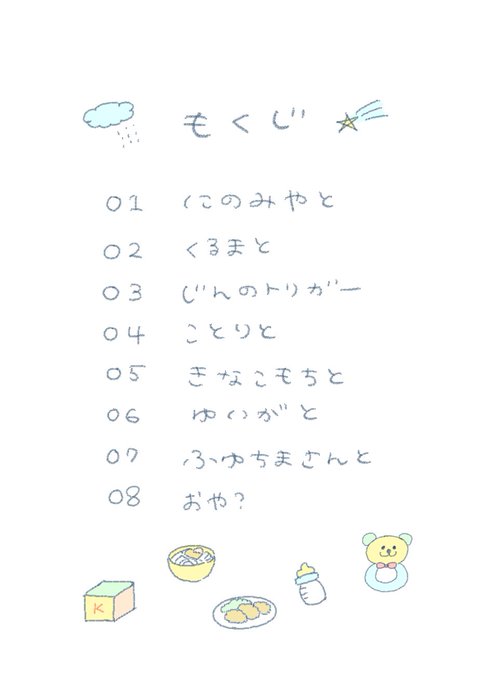 もくじ
01 にのみやと
02 くるまと
03 じんのトリガー
04 ことりと
05 きなこもちと
06 ゆいがと
07 ふゆちまさんと
08 おや?
K